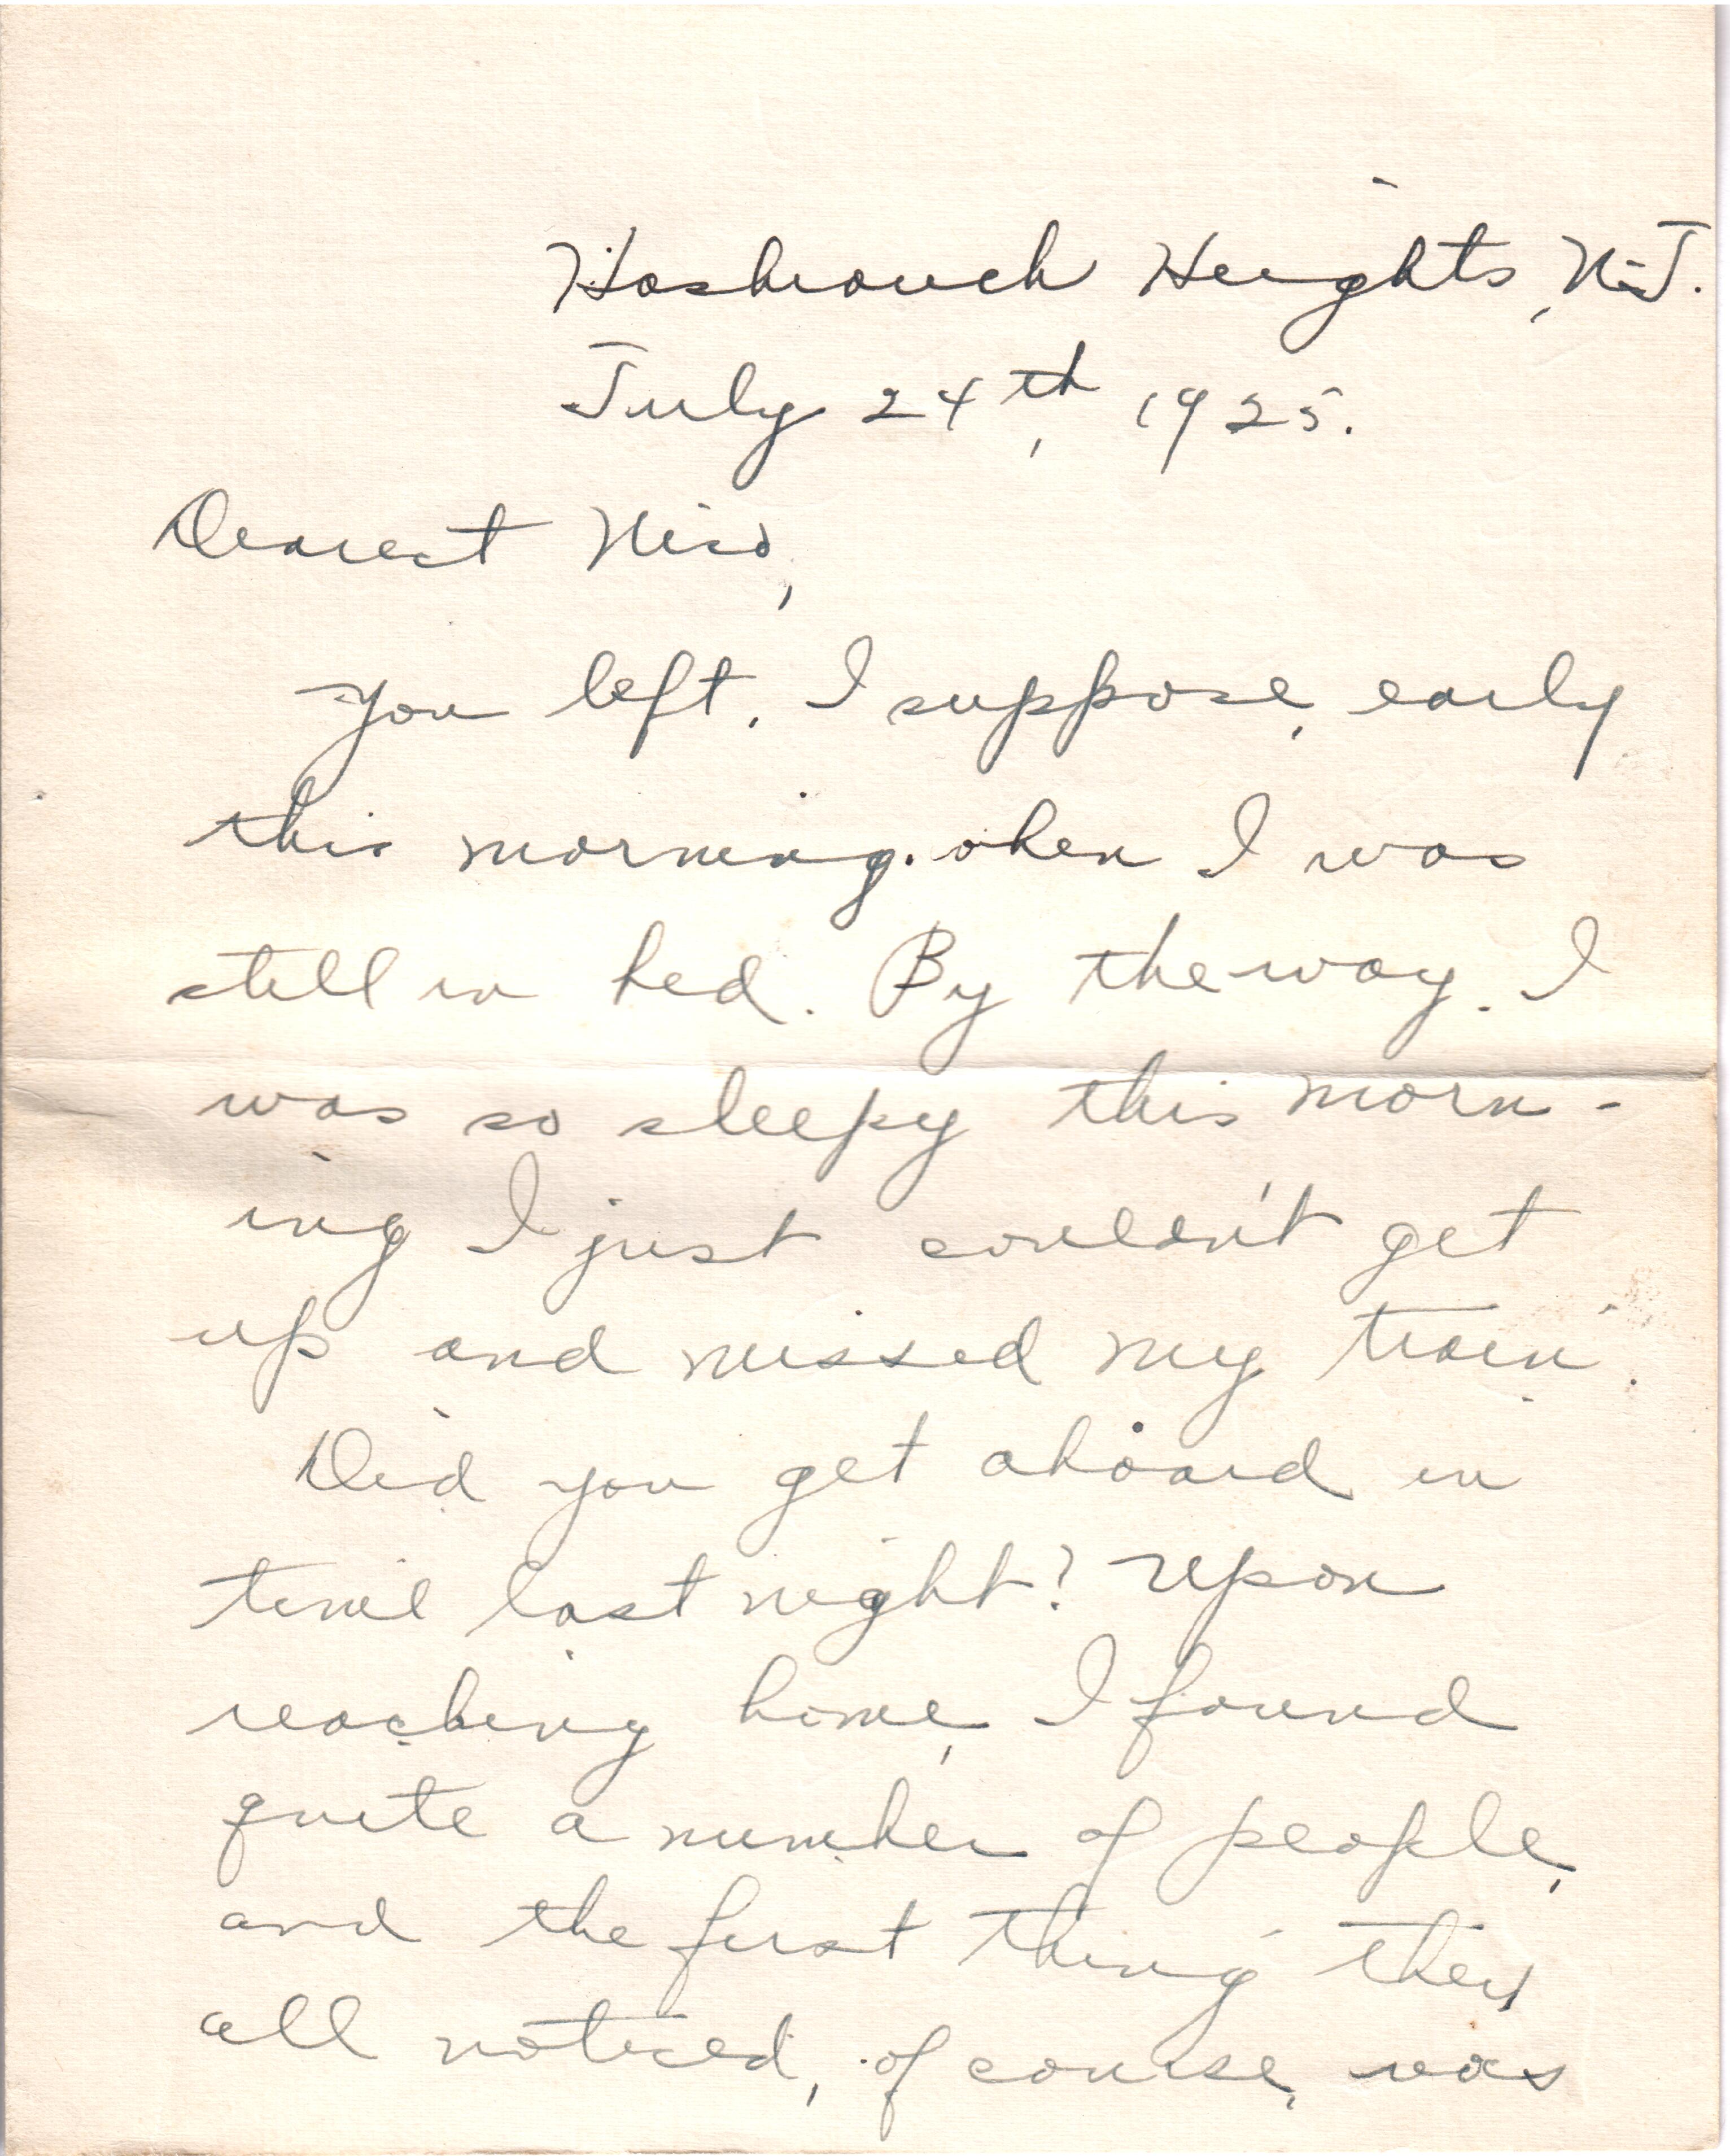 Hasbrouck Heights, N.J.
July 24th, 1925.
Dearest
You left, I suppose, early
this morning when I was
still in bed. By the way, I
was so sleepy this morn-
ing I just couldn't get
up and missed my train.
Did you get aboard in
time last night? Upon
reaching home, I found
quite a number of people,
and the first thing they
all noticed, of course, was